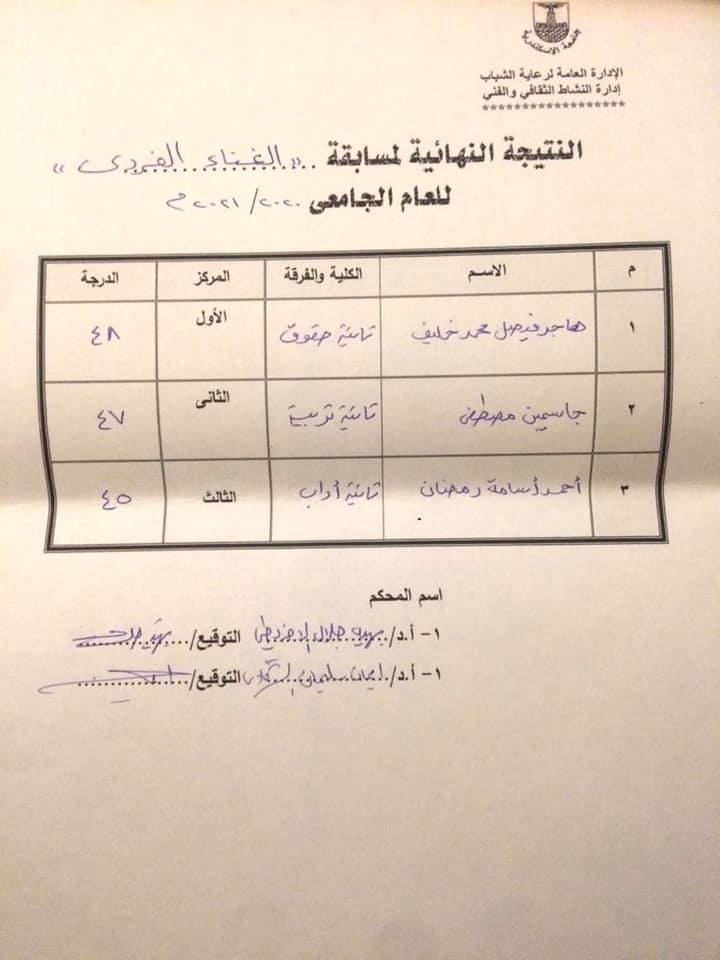 جامعة الإسكندرية
الإدارة العامة لرعاية الشباب
إدارة النشاط الثقافي والفني
******************
النتيجة النهائية لمسابقة .. "الغناء الفردى"
للعام الجامعى ٢٠٢٠/ ٢٠٢١ م
م الاسم الكلية والفرقة المركز الدرجة
١ هاجر فيصل محمد خليف ثانية حقوق الأول ٤٨
٢ جاسمين مصطفى ثانية تربية الثانى ٤٧
٣ أحمد أسامة رمضان ثانية أداب الثالث ٤٥
اسم المحكم
١- أ.د/ بهية جلال الاخريطي التوقيع/
١- أ.د/ ايمان سليمان التوقيع/